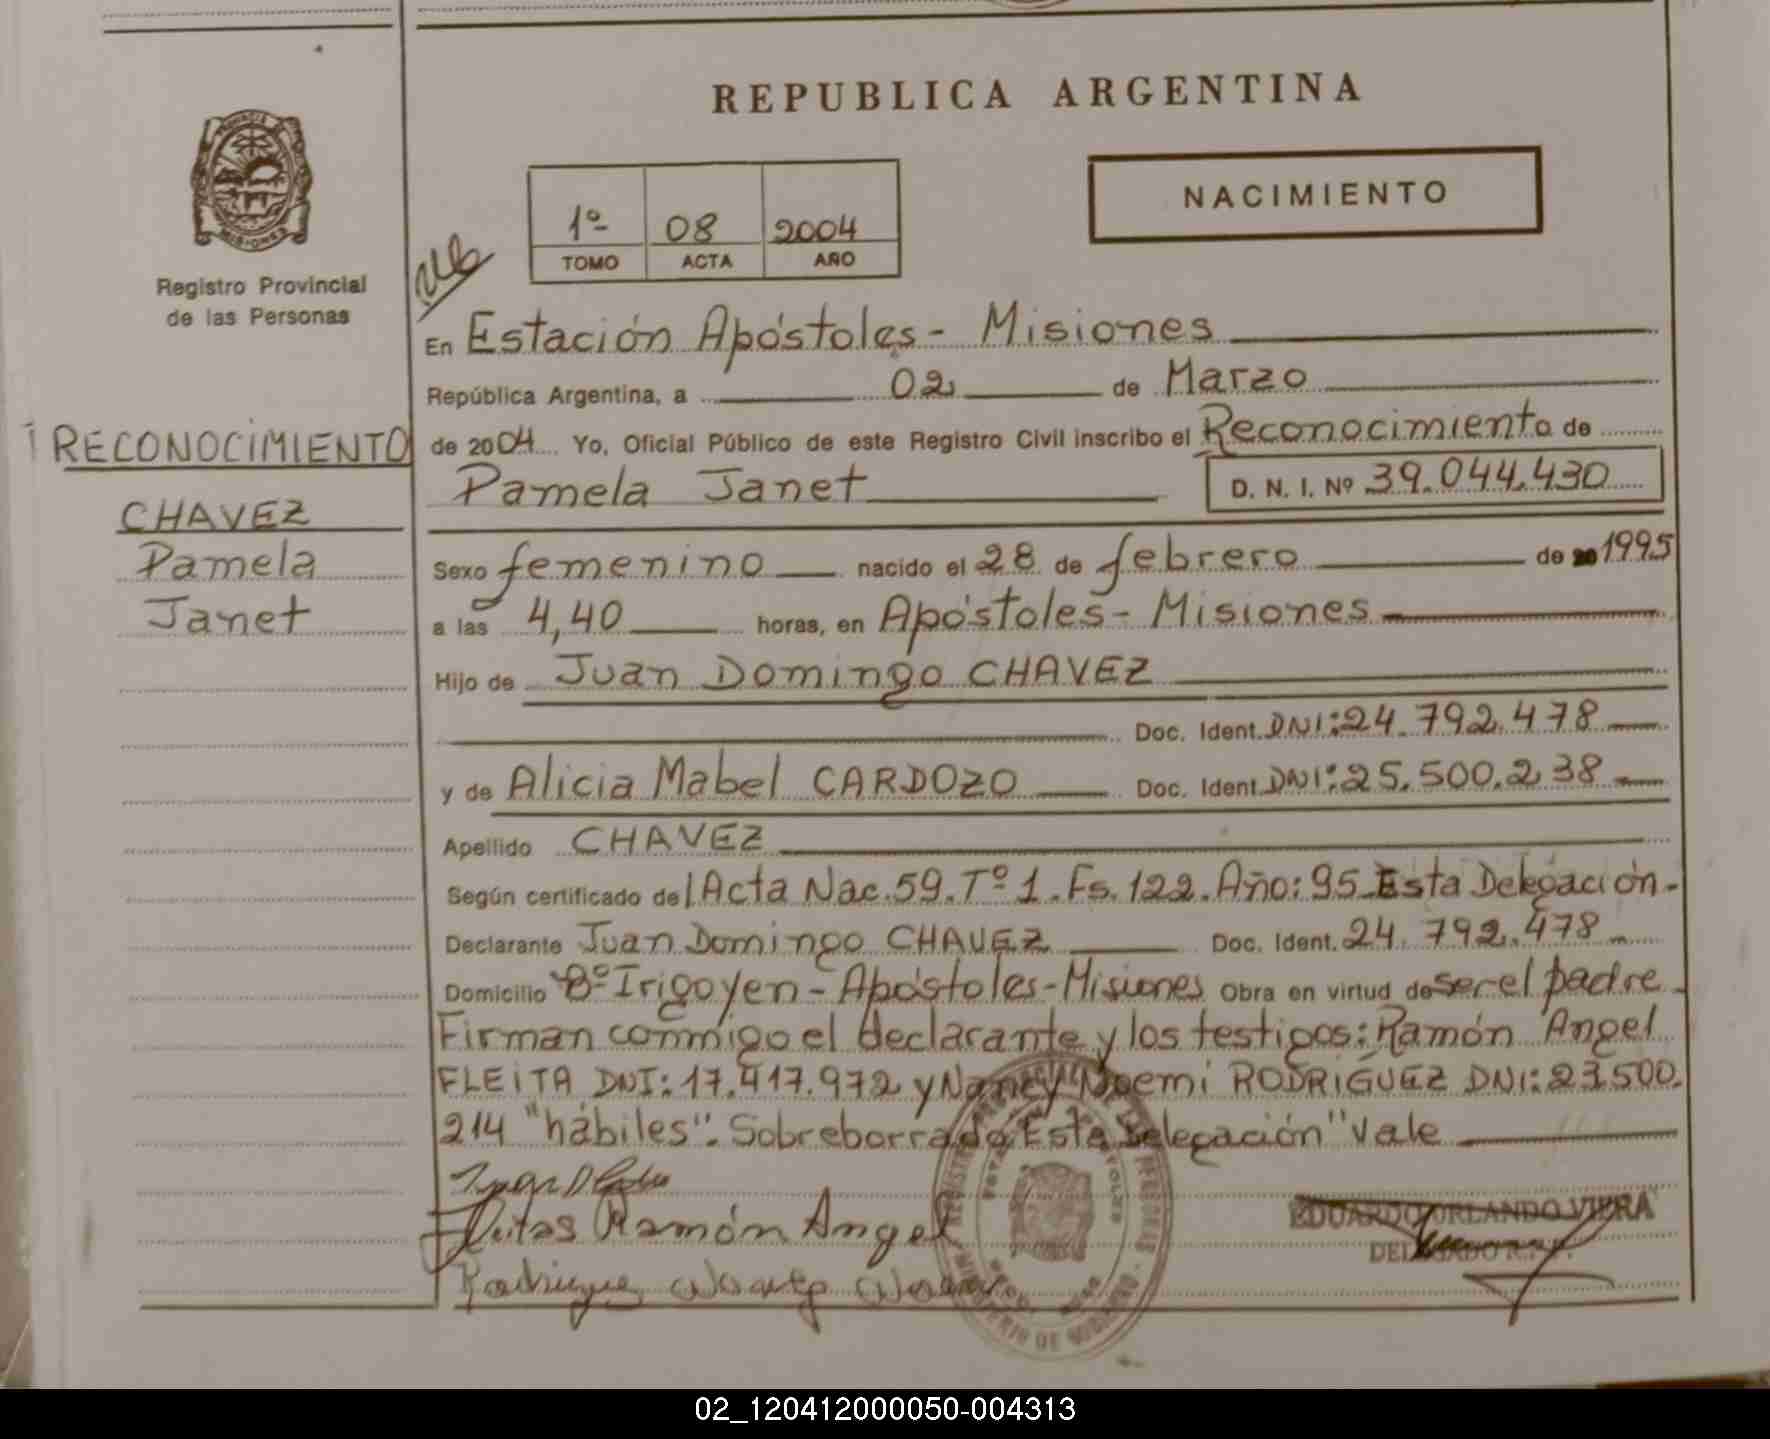 REPUBLICA ARGENTINA
NACIMIENTO
1º 08 2004
TOMO ACTA AÑO
PROVINCIA DE
MISIONES
Registro Provincial
de las Personas
RECONOCIMIENTO
CHAVEZ
Pamela
Janet
En Estación Apóstoles - Misiones
República Argentina, a 02 de Marzo
de 2004 Yo, Oficial Público de este Registro Civil inscribo el Reconocimiento de
Pamela Janet D. N. I. Nº 39.044.430
Sexo femenino nacido el 28 de febrero de 1995
a las 4,40 horas, en Apóstoles - Misiones
Hijo de Juan Domingo CHAVEZ
Doc. Ident. DNI: 24.792.478
y de Alicia Mabel CARDOZO Doc. Ident. DNI: 25.500.238
Apellido CHAVEZ
Según certificado del Acta Nac. 59. Tº 1. Fs. 122. Año: 95 Esta Delegación-
Declarante Juan Domingo CHAVEZ Doc. Ident. 24.792.478
Domicilio Bº Irigoyen - Apóstoles - Misiones Obra en virtud de ser el padre
Firman conmigo el declarante y los testigos: Ramón Angel
FLEITA DNI: 17.417.972 y Nancy Noemi RODRIGUEZ DNI: 23.500.
214 "hábiles". Sobreborrado "Esta Delegación" Vale
Ramón Angel
EDUARDO ORLANDO VIERA
DELEGADO R.P.P.
02_120412000050-004313